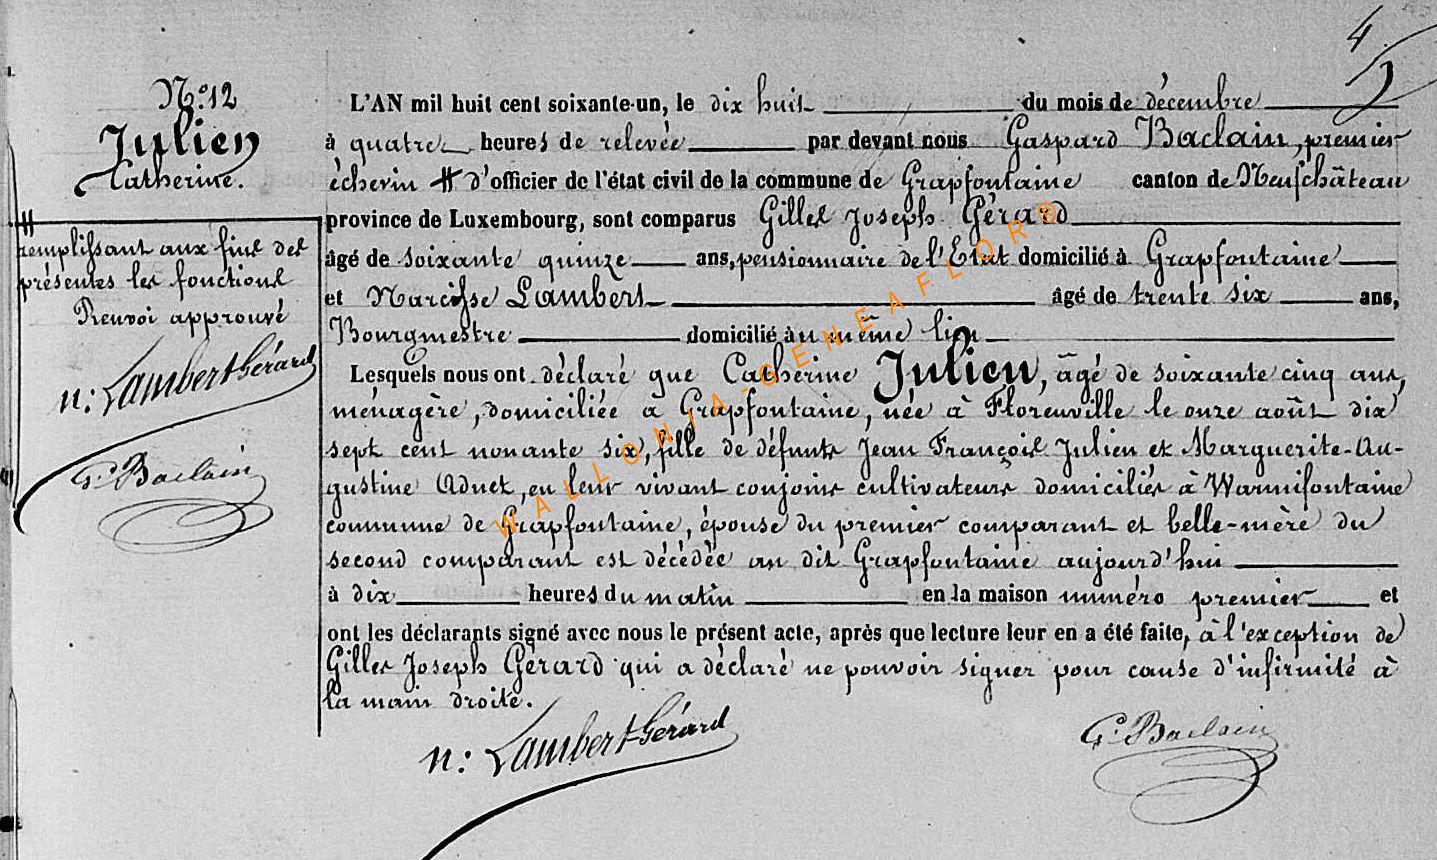 4
5
N.º 12
Julien
Catherine.
# remplissant aux fins des
présentes les fonctions
Renvoi approuvé
n: Lambert-Gérard
G. Baclain
L'AN mil huit cent soixante-un, le dix huit du mois de décembre
à quatre heures de relevée par devant nous Gaspard Baclain, premier
échevin # d'officier de l'état civil de la commune de Grapfontaine canton de Neufchâteau
province de Luxembourg, sont comparus Gilles Joseph Gérard
âgé de soixante quinze ans, pensionnaire de l'Etat domicilié à Grapfontaine
et Narcisse Lambert âgé de trente six ans,
Bourgmestre domicilié au même lieu
Lesquels nous ont déclaré que Catherine Julien, âgé de soixante cinq ans,
ménagère, domiciliée à Grapfontaine, née à Florenville le onze août dix
sept cent nonante six, fille de défunts Jean François Julien et Marguerite-Au-
gustine Adnet, en leur vivant conjoins cultivateurs domiciliés à Warmifontaine
commune de Grapfontaine, épouse du premier comparant et belle-mère du
second comparant est décédée au dit Grapfontaine aujourd'hui
à dix heures du matin en la maison numéro premier et
ont les déclarants signé avec nous le présent acte, après que lecture leur en a été faite, à l'exception de
Gilles Joseph Gérard qui a déclaré ne pouvoir signer pour cause d'infirmité à
la main droite.
n: Lambert-Gérard
G. Baclain
WALLONIA-GENEAFLOR®